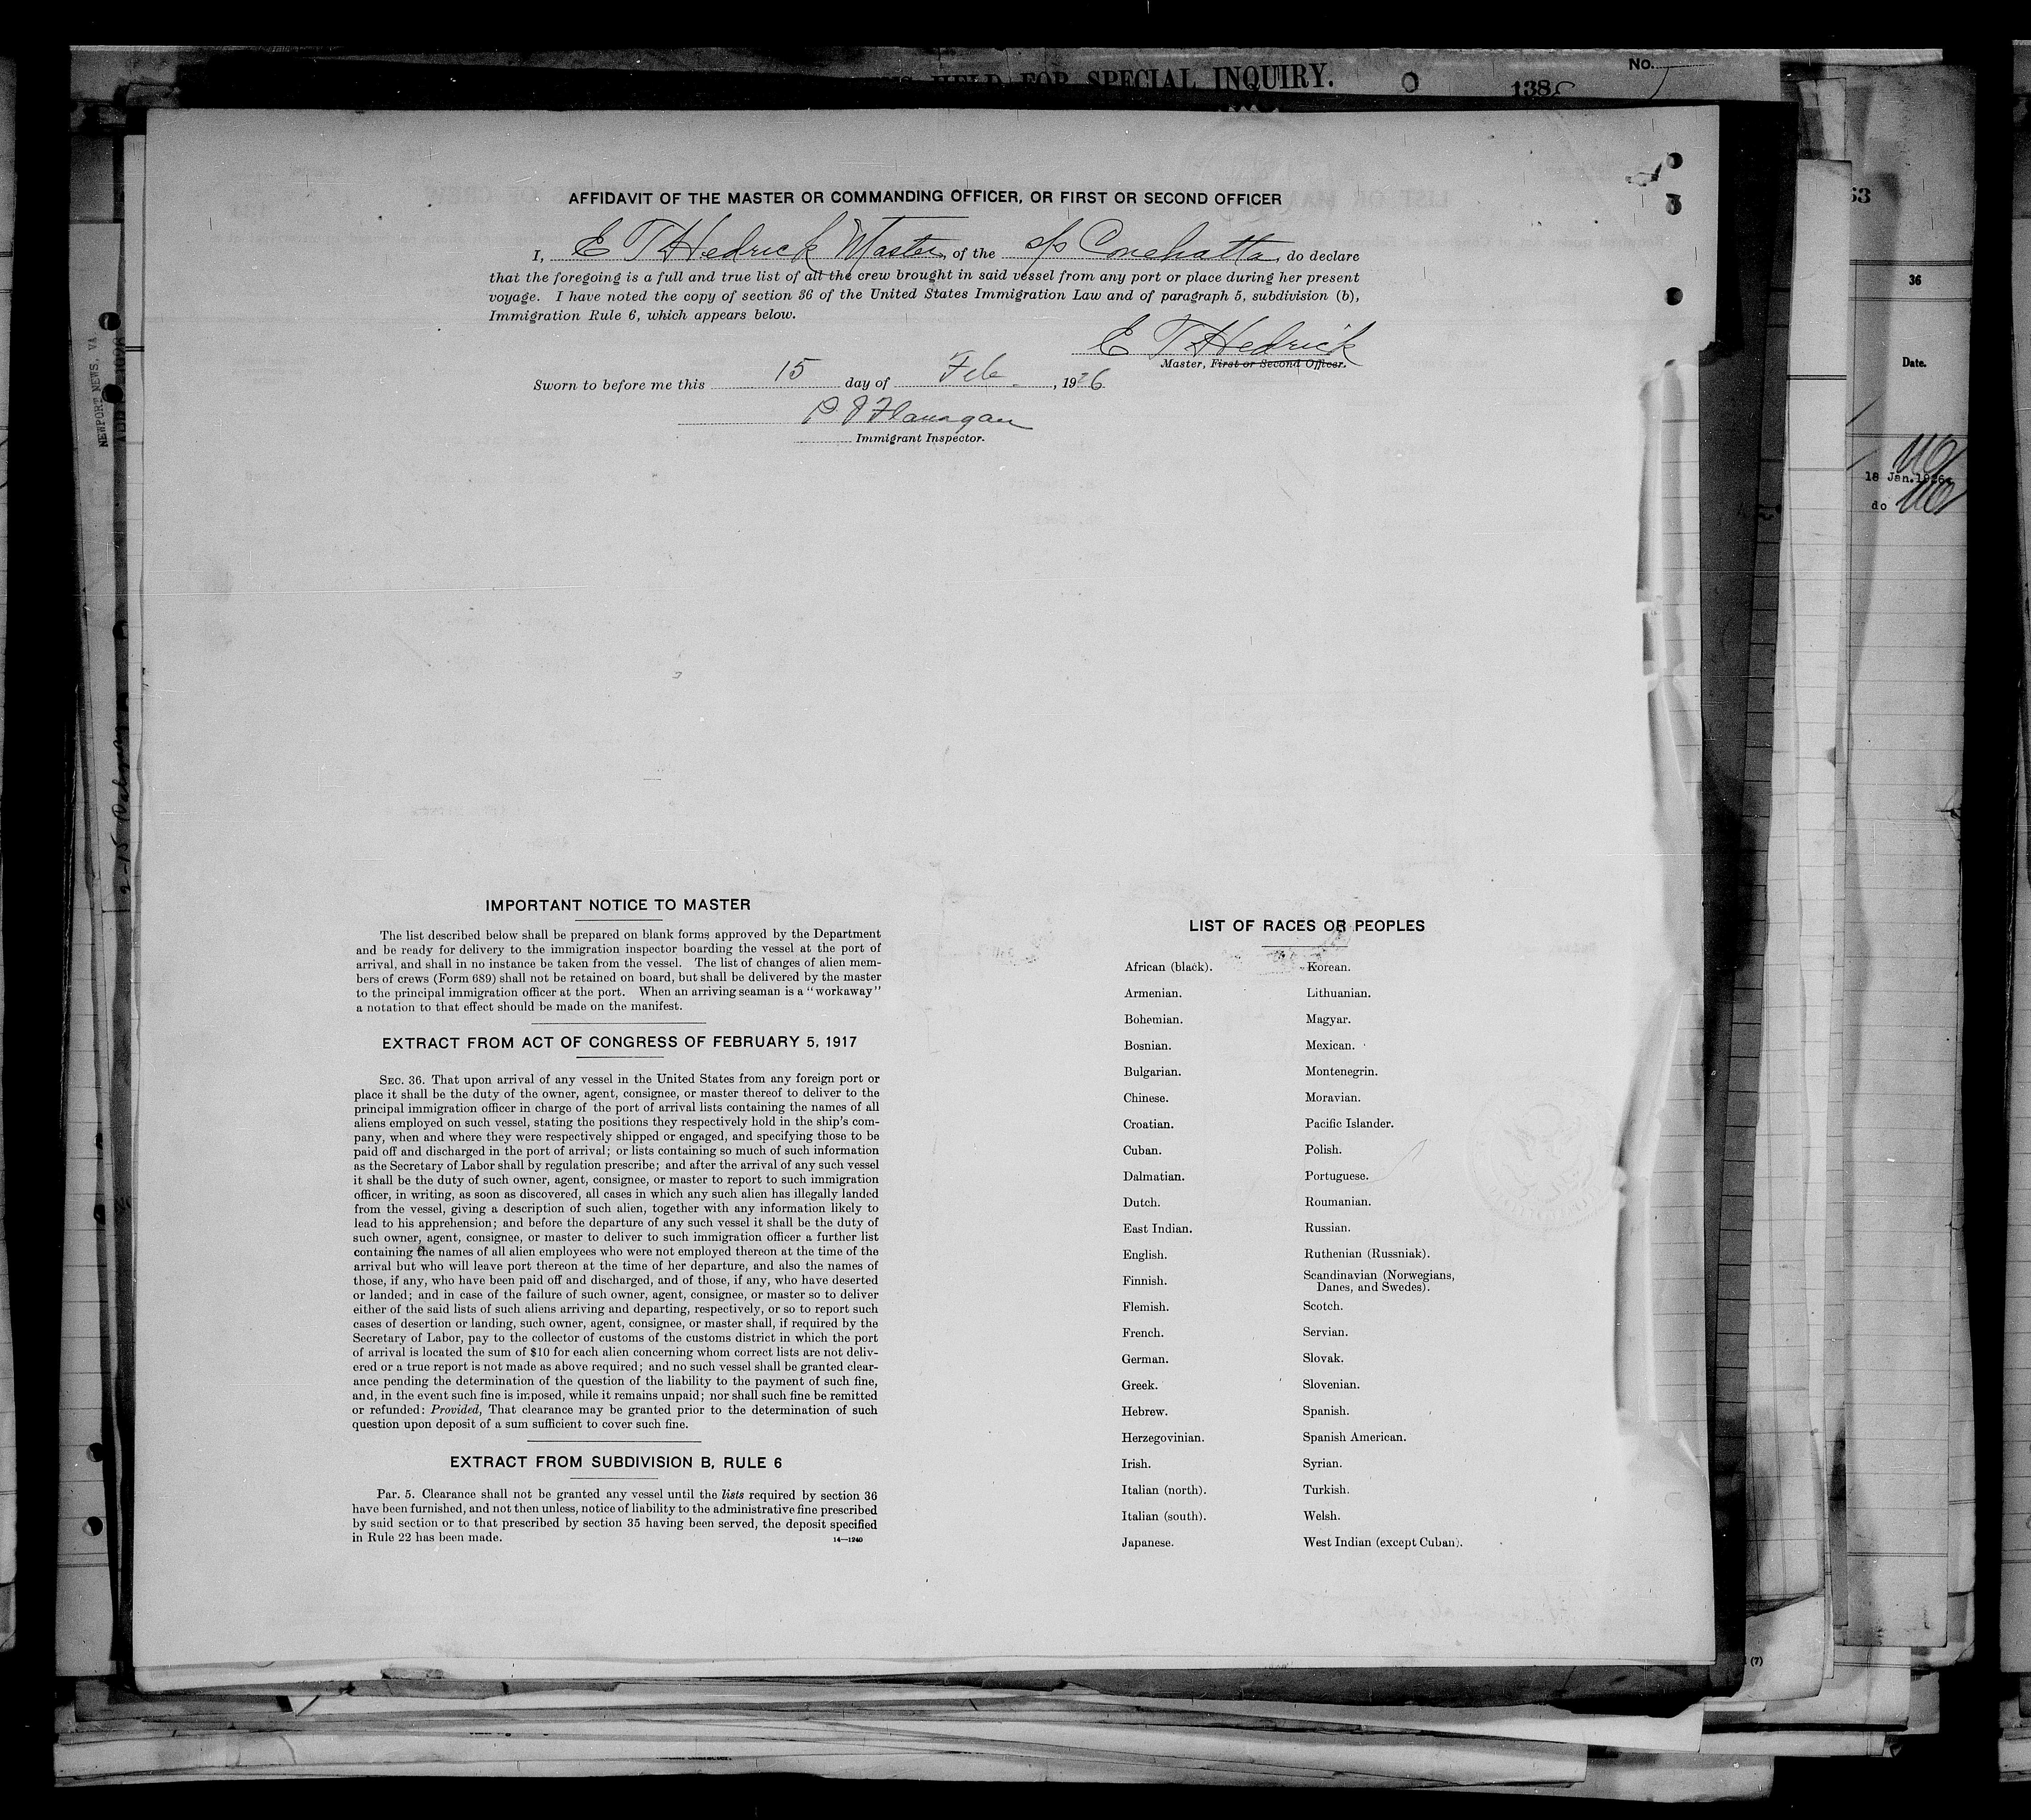 HELD FOR SPECIAL INQUIRY.
No.
138
53
36
Date.
18 Jan. 1926
do
NEWPORT NEWS, VA
AFFIDAVIT OF THE MASTER OR COMMANDING OFFICER, OR FIRST OR SECOND OFFICER
I, E T Hedrick Master of the s/s Conehatta, do declare
that the foregoing is a full and true list of all the crew brought in said vessel from any port or place during her present
voyage. I have noted the copy of section 36 of the United States Immigration Law and of paragraph 5, subdivision (b),
Immigration Rule 6, which appears below.
E T Hedrick
Master, First or Second Officer.
Sworn to before me this 15 day of Feb., 1926
P J Flanagan
Immigrant Inspector.
IMPORTANT NOTICE TO MASTER
The list described below shall be prepared on blank forms approved by the Department
and be ready for delivery to the immigration inspector boarding the vessel at the port of
arrival, and shall in no instance be taken from the vessel. The list of changes of alien mem-
bers of crews (Form 689) shall not be retained on board, but shall be delivered by the master
to the principal immigration officer at the port. When an arriving seaman is a "workaway"
a notation to that effect should be made on the manifest.
EXTRACT FROM ACT OF CONGRESS OF FEBRUARY 5, 1917
SEC. 36. That upon arrival of any vessel in the United States from any foreign port or
place it shall be the duty of the owner, agent, consignee, or master thereof to deliver to the
principal immigration officer in charge of the port of arrival lists containing the names of all
aliens employed on such vessel, stating the positions they respectively hold in the ship's com-
pany, when and where they were respectively shipped or engaged, and specifying those to be
paid off and discharged in the port of arrival; or lists containing so much of such information
as the Secretary of Labor shall by regulation prescribe; and after the arrival of any such vessel
it shall be the duty of such owner, agent, consignee, or master to report to such immigration
officer, in writing, as soon as discovered, all cases in which any such alien has illegally landed
from the vessel, giving a description of such alien, together with any information likely to
lead to his apprehension; and before the departure of any such vessel it shall be the duty of
such owner, agent, consignee, or master to deliver to such immigration officer a further list
containing the names of all alien employees who were not employed thereon at the time of the
arrival but who will leave port thereon at the time of her departure, and also the names of
those, if any, who have been paid off and discharged, and of those, if any, who have deserted
or landed; and in case of the failure of such owner, agent, consignee, or master so to deliver
either of the said lists of such aliens arriving and departing, respectively, or so to report such
cases of desertion or landing, such owner, agent, consignee, or master shall, if required by the
Secretary of Labor, pay to the collector of customs of the customs district in which the port
of arrival is located the sum of $10 for each alien concerning whom correct lists are not deliv-
ered or a true report is not made as above required; and no such vessel shall be granted clear-
ance pending the determination of the question of the liability to the payment of such fine,
and, in the event such fine is imposed, while it remains unpaid; nor shall such fine be remitted
or refunded: Provided, That clearance may be granted prior to the determination of such
question upon deposit of a sum sufficient to cover such fine.
EXTRACT FROM SUBDIVISION B, RULE 6
PAR. 5. Clearance shall not be granted any vessel until the lists required by section 36
have been furnished, and not then unless, notice of liability to the administrative fine prescribed
by said section or to that prescribed by section 35 having been served, the deposit specified
in Rule 22 has been made.
14—1240
LIST OF RACES OR PEOPLES
African (black).
Armenian.
Bohemian.
Bosnian.
Bulgarian.
Chinese.
Croatian.
Cuban.
Dalmatian.
Dutch.
East Indian.
English.
Finnish.
Flemish.
French.
German.
Greek.
Hebrew.
Herzegovinian.
Irish.
Italian (north).
Italian (south).
Japanese.
Korean.
Lithuanian.
Magyar.
Mexican.
Montenegrin.
Moravian.
Pacific Islander.
Polish.
Portuguese.
Roumanian.
Russian.
Ruthenian (Russniak).
Scandinavian (Norwegians,
Danes, and Swedes).
Scotch.
Servian.
Slovak.
Slovenian.
Spanish.
Spanish American.
Syrian.
Turkish.
Welsh.
West Indian (except Cuban).
(7)